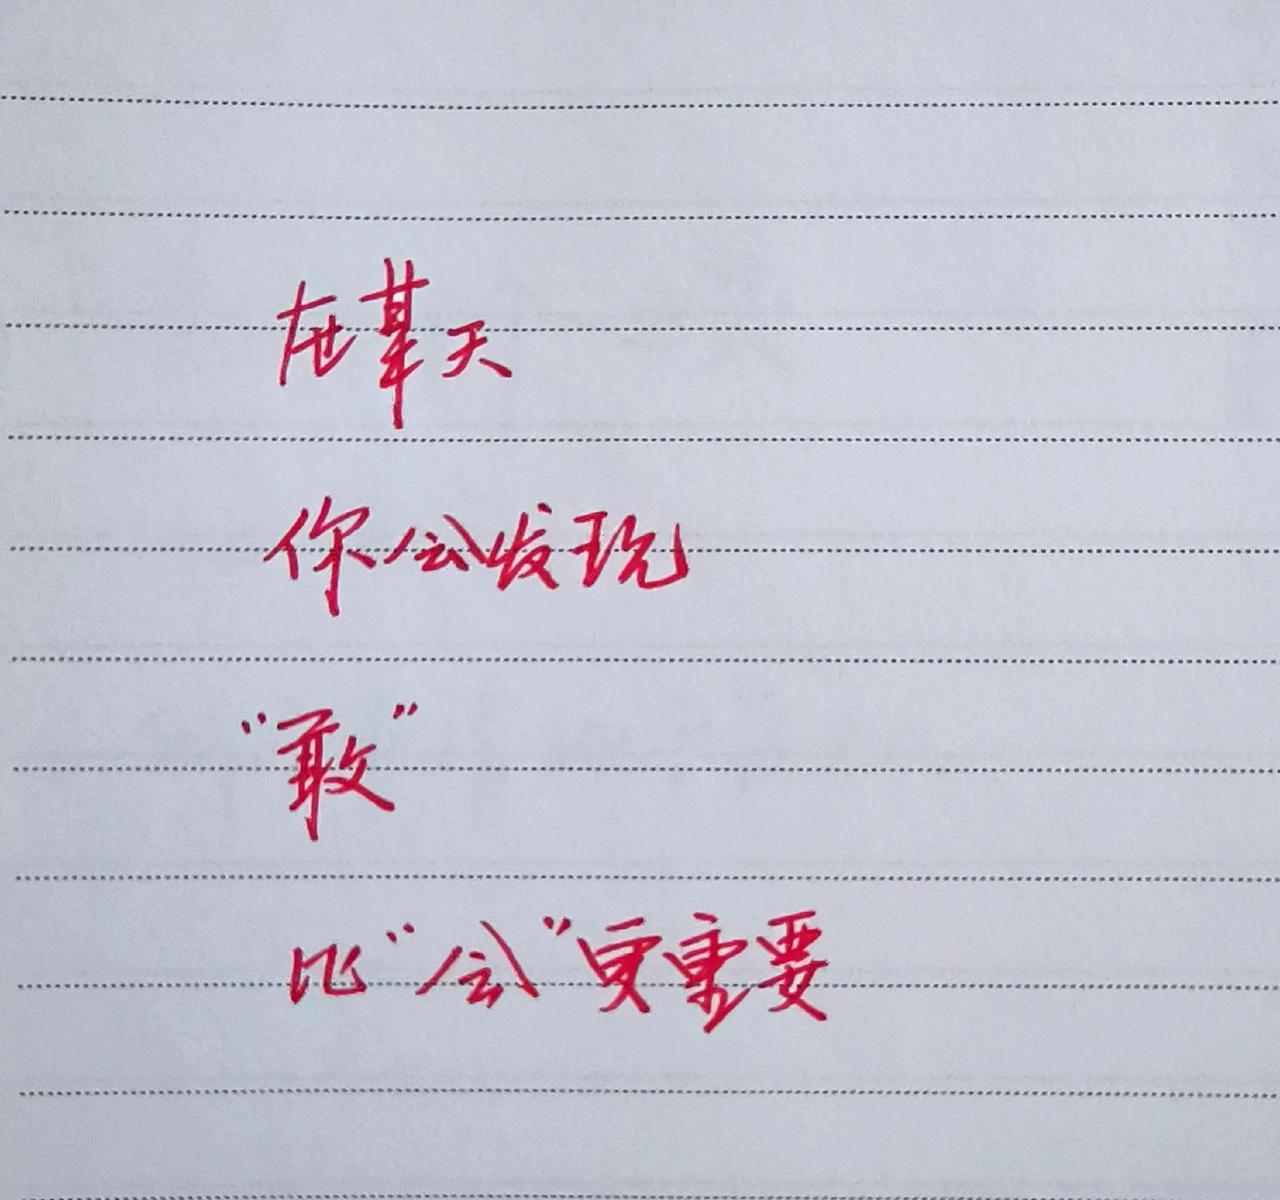 在某天
你会发现
“敢”
比“会”更重要